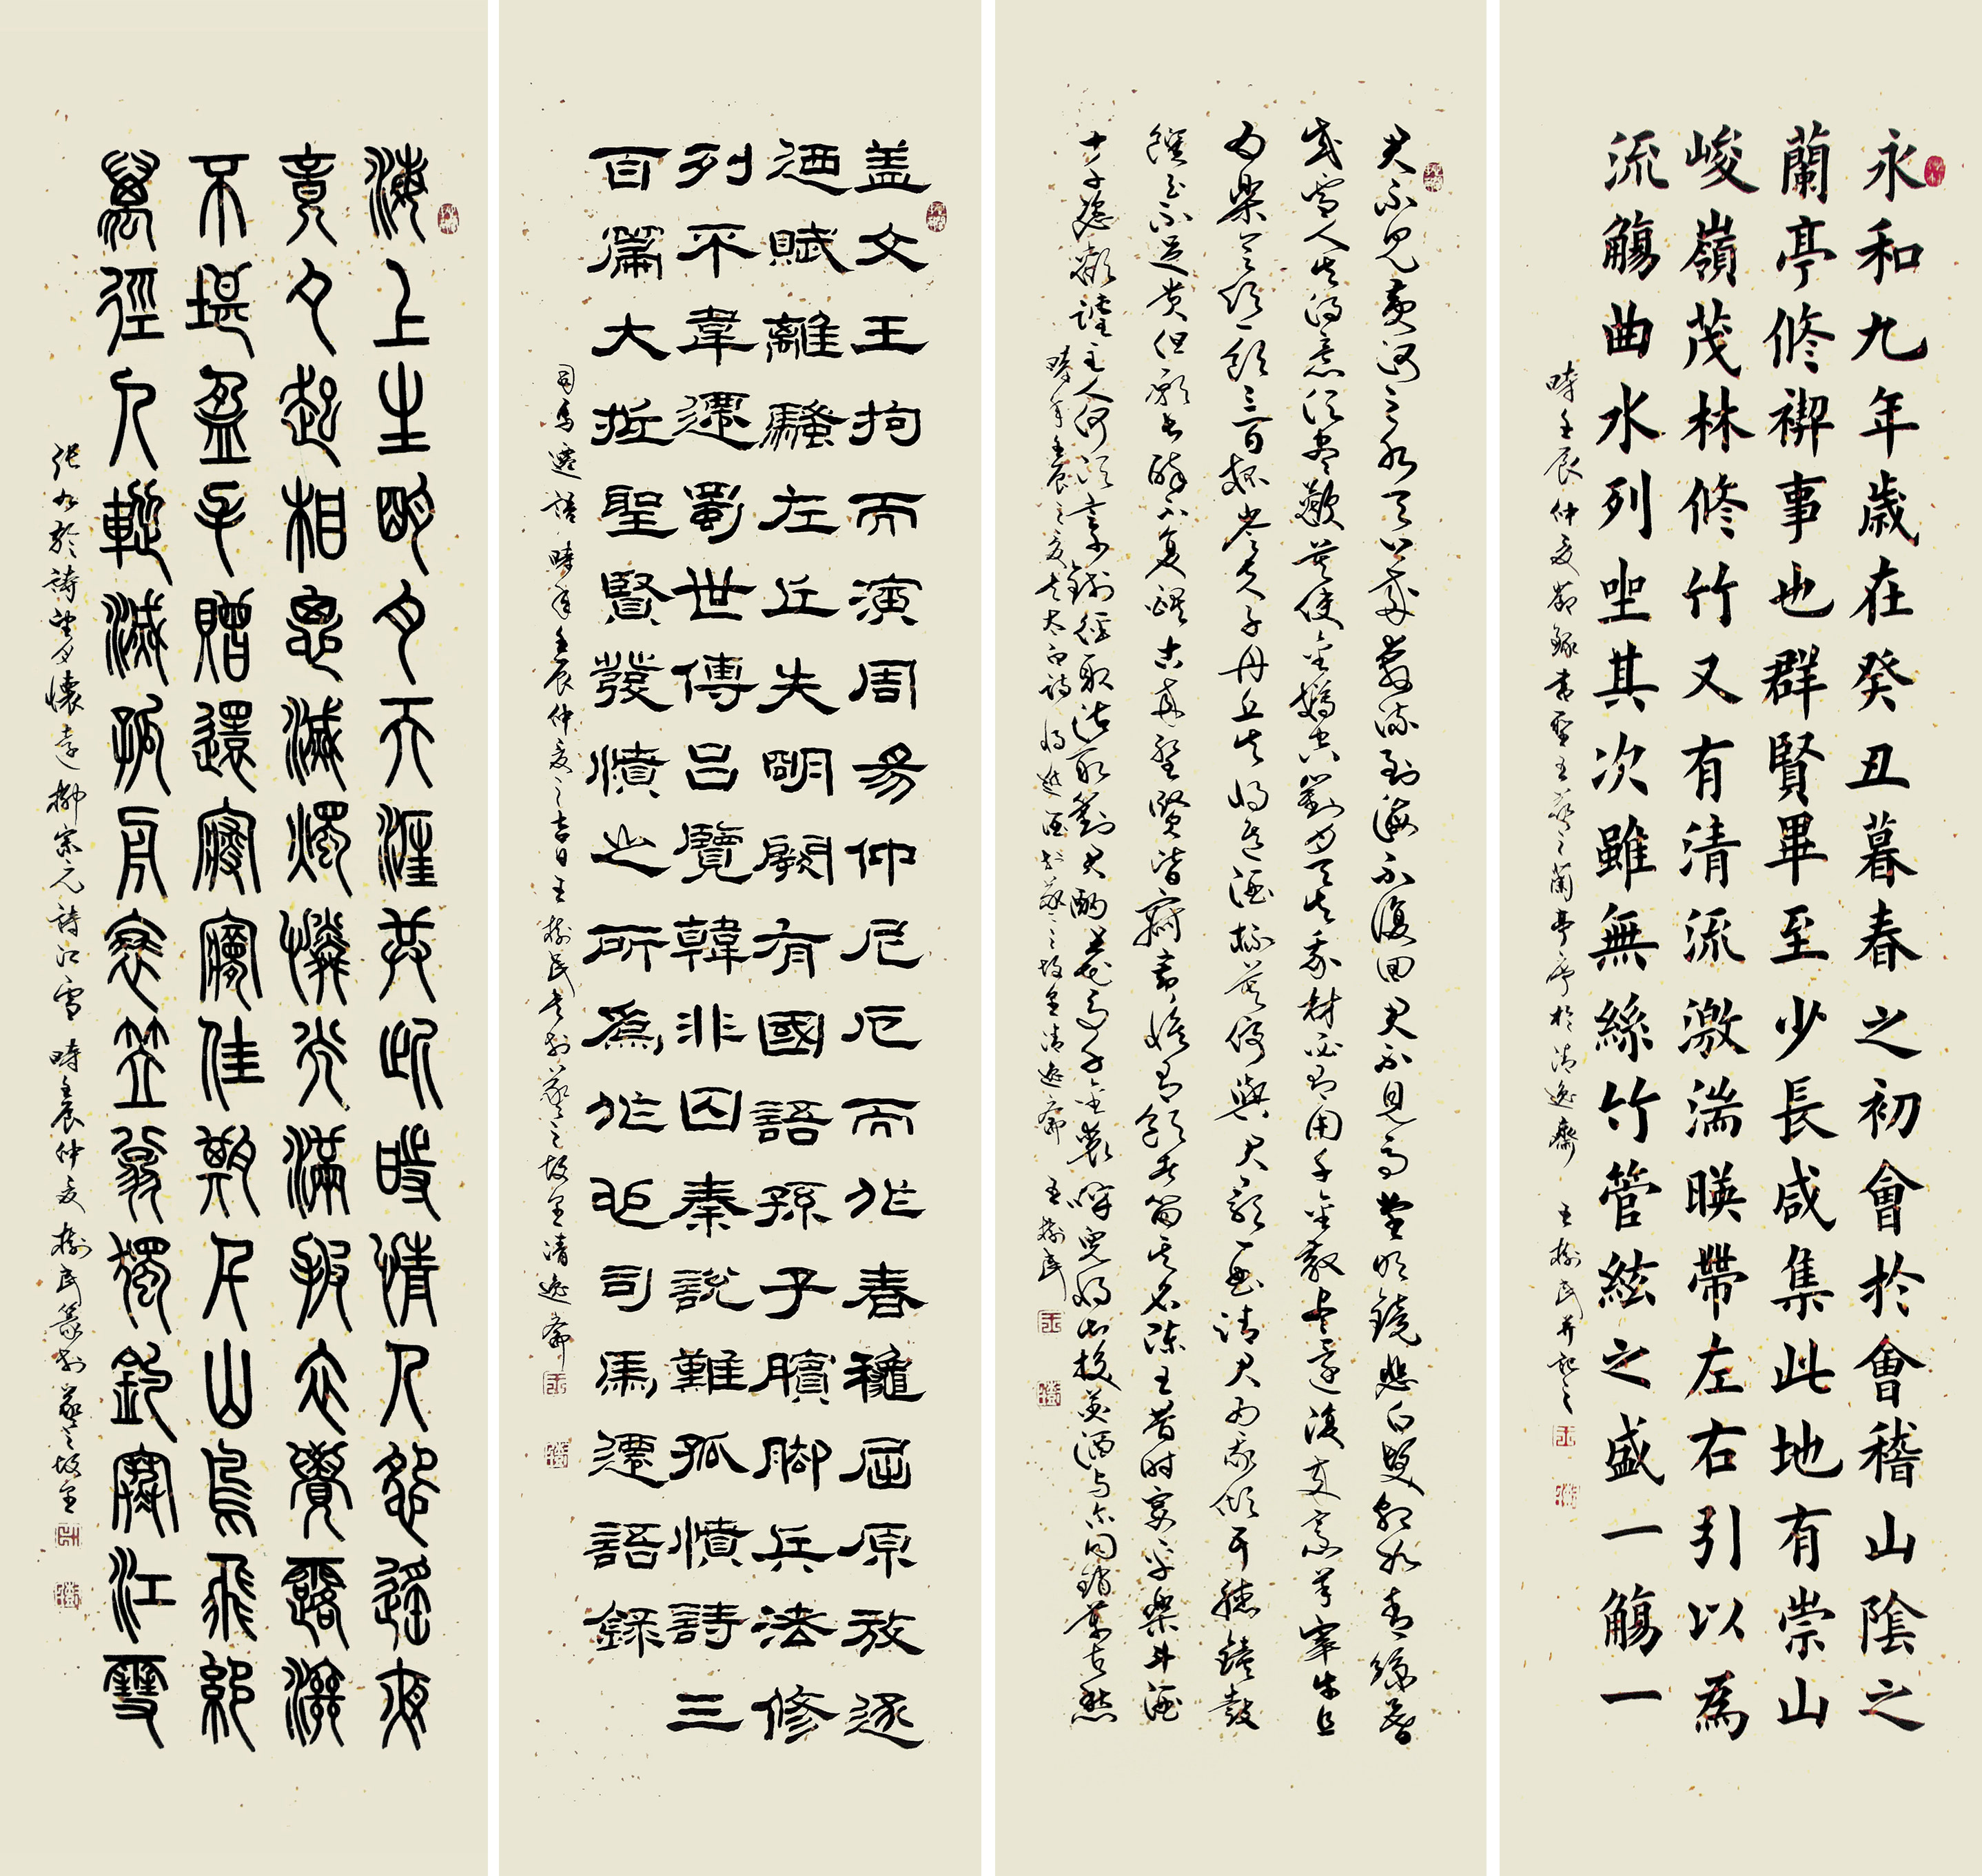 永和九年歲在癸丑暮春之初會於會稽山陰之
蘭亭修禊事也群賢畢至少長咸集此地有崇山
峻嶺茂林修竹又有清流激湍暎帶左右引以為
流觴曲水列坐其次雖無絲竹管絃之盛一觴一
時壬辰仲夏節錄書聖王羲之蘭亭序於清逸齋 王樹民并記之
君不見黃河之水天上來奔流到海不復回君不見高堂明鏡悲白髮朝如青絲暮
成雪人生得意須盡歡莫使金樽空對月天生我材必有用千金散盡還復來烹羊宰牛且
為樂會須一飲三百杯岑夫子丹丘生將進酒杯莫停與君歌一曲請君為我傾耳聽鐘鼓
饌玉不足貴但願長醉不復醒古來聖賢皆寂寞惟有飲者留其名陳王昔時宴平樂斗酒
十千恣歡謔主人何須言少錢徑取沽取對君酌五花馬千金裘呼兒將出換美酒与尔同銷萬古愁
時年壬辰之夏書太白詩將進酒於羲之故里清逸齋 王樹民
盖文王拘而演周易仲尼厄而作春穐屈原放逐
迺賦離騷左丘失明厥有國語孫子臏脚兵法修
列不韋遷蜀世傳呂覽韓非囚秦說難孤憤詩三
百篇大抵聖賢發憤之所為作也司馬遷語錄
司馬遷語 時年壬辰仲夏之吉日王樹民書於羲之故里清逸齋
海上生明月天涯共此時情人怨遙夜
竟夕起相思滅燭憐光滿披衣覺露滋
不堪盈手贈還寢夢佳期千山鳥飛絕
萬徑人蹤滅孤舟蓑笠翁獨釣寒江雪
張九齡詩望月懷遠柳宗元詩江雪 時壬辰仲夏樹民篆於羲之故里